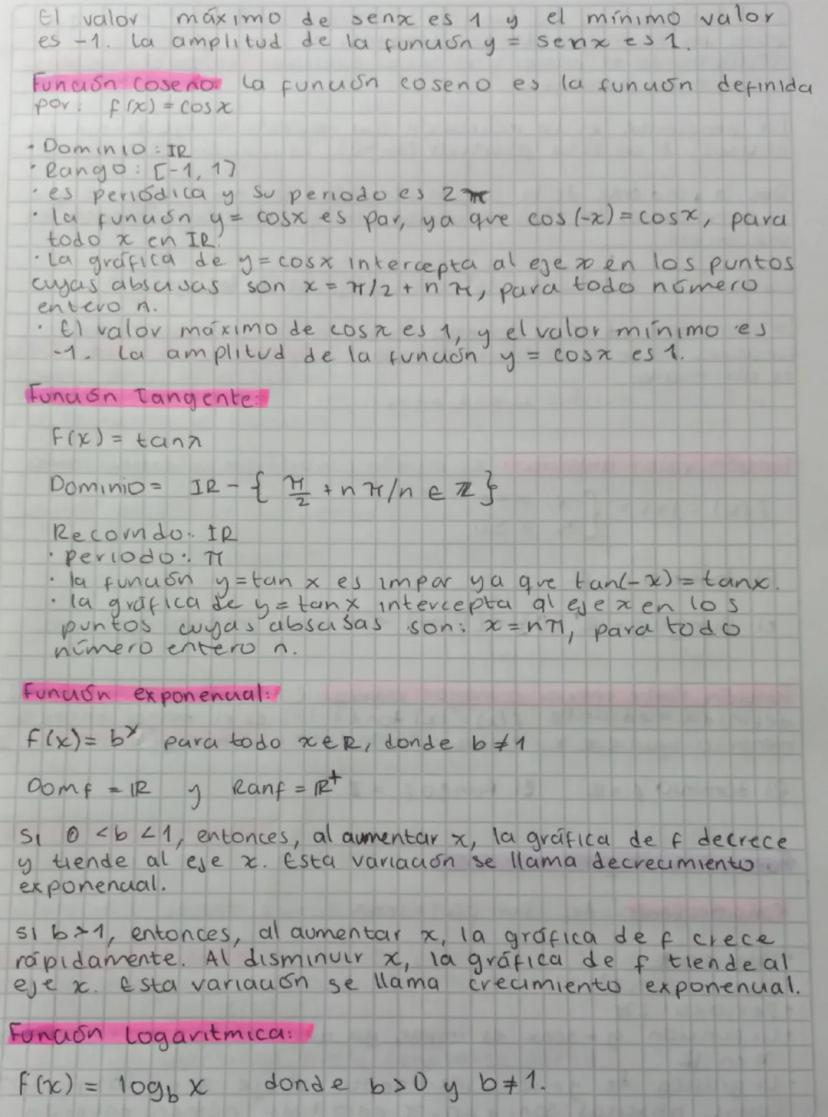 El valor máximo de senx es 1 y el mínimo valor
es -1. La amplitud de la función y = senx es 1.
Función coseno: La función coseno es la función definida
por: f(x) = cosx
· Dominio: IR
· Rango: [-1, 1]
· es periódica y su periodo es 2π
· la función y = cosx es par, ya que cos(-x) = cosx, para
todo x en IR.
· La gráfica de y = cosx intercepta al eje x en los puntos
cuyas abscisas son x = π/2 + nπ, para todo número
entero n.
· El valor máximo de cosx es 1, y el valor mínimo es
-1. La amplitud de la función y = cosx es 1.
Función Tangente:
f(x) = tanx
Dominio = IR - { π/2 + nπ/n ∈ ℤ }
Recorrido: IR
· periodo: π
· la función y = tan x es impar ya que tan(-x) = tanx.
· la gráfica de y = tanx intercepta al eje x en los
puntos cuyas abscisas son: x = nπ, para todo
número entero n.
Función exponencial:
f(x) = b^x para todo x∈R, donde b ≠ 1
Domf = IR y Ranf = IR⁺
Si 0 < b < 1, entonces, al aumentar x, la gráfica de f decrece
y tiende al eje x. Esta variación se llama decrecimiento
exponencial.
si b > 1, entonces, al aumentar x, la gráfica de f crece
rápidamente. Al disminuir x, la gráfica de f tiende al
eje x. Esta variación se llama crecimiento exponencial.
Función Logarítmica:
f(x) = log_b x donde b > 0 y b ≠ 1.